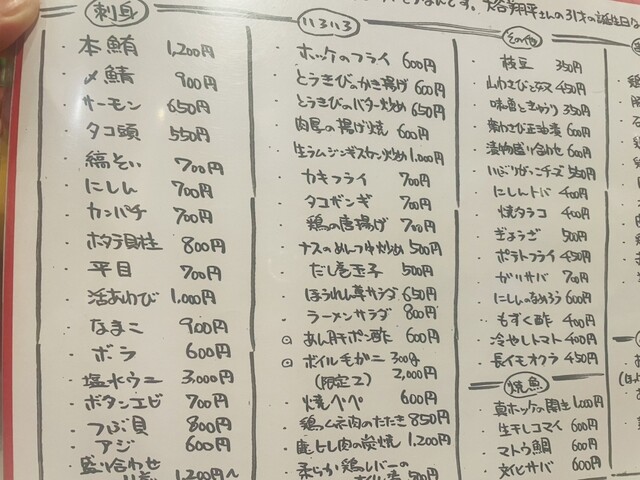 なんです。大谷翔平さんの31才の誕生日
刺身
・本鮪 1,200円
・〆鯖 900円
・サーモン 650円
・タコ頭 550円
・縞そい 700円
・にしん 700円
・カンパチ 700円
・ホタテ貝柱 800円
・平目 700円
・活あわび 1,000円
・なまこ 900円
・ボラ 600円
・塩水ウニ 3,000円
・ボタンエビ 700円
・つぶ貝 800円
・アジ 600円
・盛り合わせ
1,200円~
いろいろ
・ホッケのフライ 600円
・とうきびのかき揚げ 600円
・とうきびのバター炒め 650円
・肉厚の揚げ焼 600円
・生ラムジンギスカン炒め 1,000円
・カキフライ 700円
・タコザンギ 700円
・鶏の唐揚げ 700円
・ナスのめんつゆ炒め 500円
・だし巻玉子 500円
・ほうれん草サラダ 650円
・ラーメンサラダ 800円
◎あん肝ポン酢 600円
◎ボイル毛がに 300g
(限定2) 2,000円
・焼ペペ 600円
・鶏ムネ肉のたたき 850円
・鹿ヒレ肉の炭焼 1,200円
・柔らか鶏レバーの
その他
・枝豆 350円
・山わさび 450円
・味噌ときゅうり 350円
・山わさび正油漬 600円
・漬物盛り合わせ 600円
・いぶりがっこチーズ 550円
・にしんトバ 400円
・焼タラコ 400円
・ぎょうざ 500円
・ポテトフライ 450円
・ガリサバ 700円
・にしんのなめろう 600円
・もずく酢 400円
・冷やしトマト 400円
・長イモオクラ 450円
焼魚
・真ホッケの開き 1,000円
・生干しコマイ 600円
・マトウ鯛 600円
・文化サバ 600円